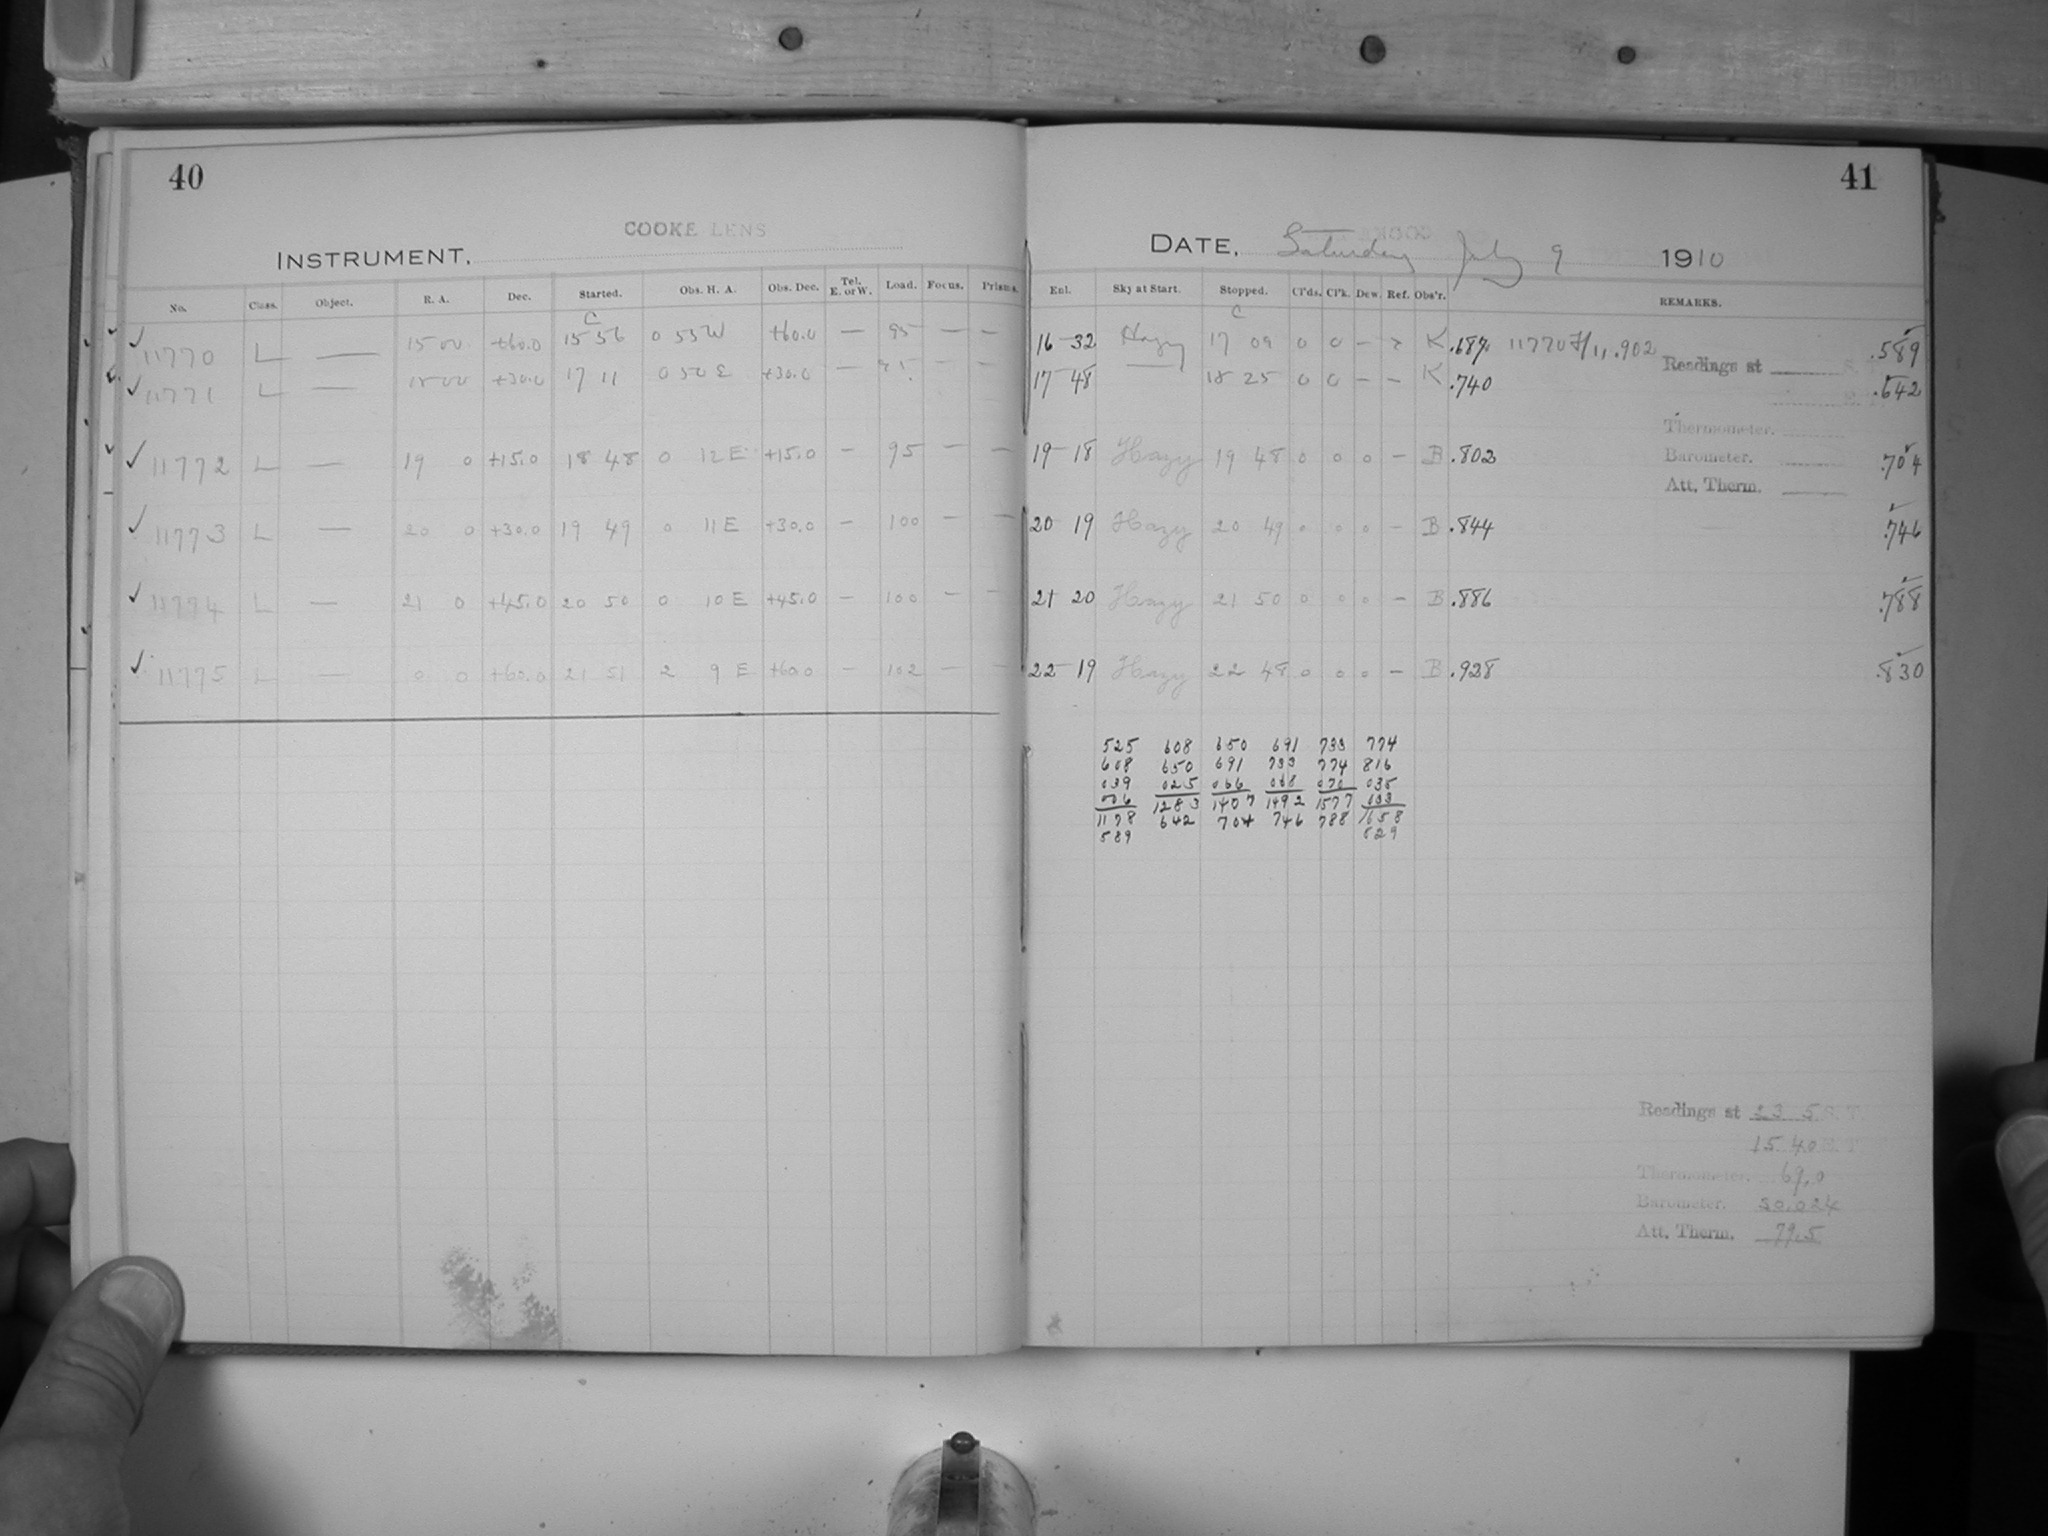 40
COOKE LENS
INSTRUMENT.
No. Class. Object. R. A. Dec. Started. Obs. H. A. Obs. Dec. Tel. E. or W. Load. Focus. Prisms.
C
✓ 11770 L — 15 00 +60.0 15 56 0 53 W +60.0 — 95 — —
✓ 11771 L — +30.0 17 11 0 50 E +30.0 —
✓ 11772 L — 19 0 +15.0 18 48 0 12 E +15.0 — 95 — —
✓ 11773 L — 20 0 +30.0 19 49 0 11 E +30.0 — 100 — —
✓ 11774 L — 21 0 +45.0 20 50 0 10 E +45.0 — 100 — —
✓ 11775 L — 0 0 +60.0 21 51 2 9 E +60.0 — 102 — —
41
DATE, Saturday July 9 1910
Exl. Sky at Start. Stopped. Cl'ds. Cl'k. Dew. Ref. Obs'r. REMARKS.
C
16 32 Hazy 17 09 0 0 — K .687 .902 .589
Readings at
17 48 — 18 25 0 0 — — K .740 .642
Thermometer.
19 18 Hazy 19 48 0 0 0 — B .802 .704
Barometer.
Att. Therm.
20 19 Hazy 20 49 0 0 0 — B .844 .746
21 20 Hazy 21 50 0 0 0 — B .886 .788
22 19 Hazy 22 48 0 0 0 — B .928 .830
525 608 650 691 733 774
608 650 691 733 774 816
039 025 066 068 070 035
006 1283 1407 1492 1577 033
1178 642 704 746 788 1658
589 829
Readings at 23 5 S. T
15 40 E. T
Thermometer. 69.0
Barometer. 30.024
Att. Therm. 79.5